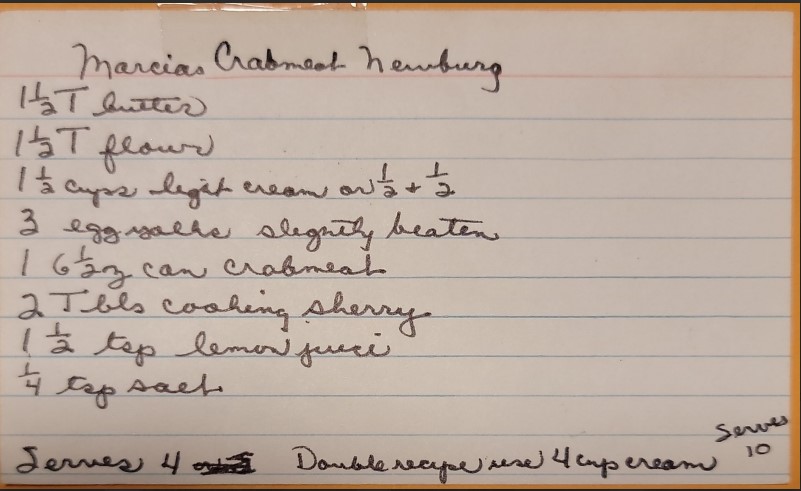 Marcias Crabmeat Newburg
1 1/2 T butter
1 1/2 T flour
1 1/2 cups light cream or 1/2 + 1/2
3 egg yolks slightly beaten
1 6 1/2 oz can crabmeat
2 Tbls cooking sherry
1 1/2 tsp lemon juice
1/4 tsp salt
Serves 4 Double recipe use 4 cup cream Serves 10